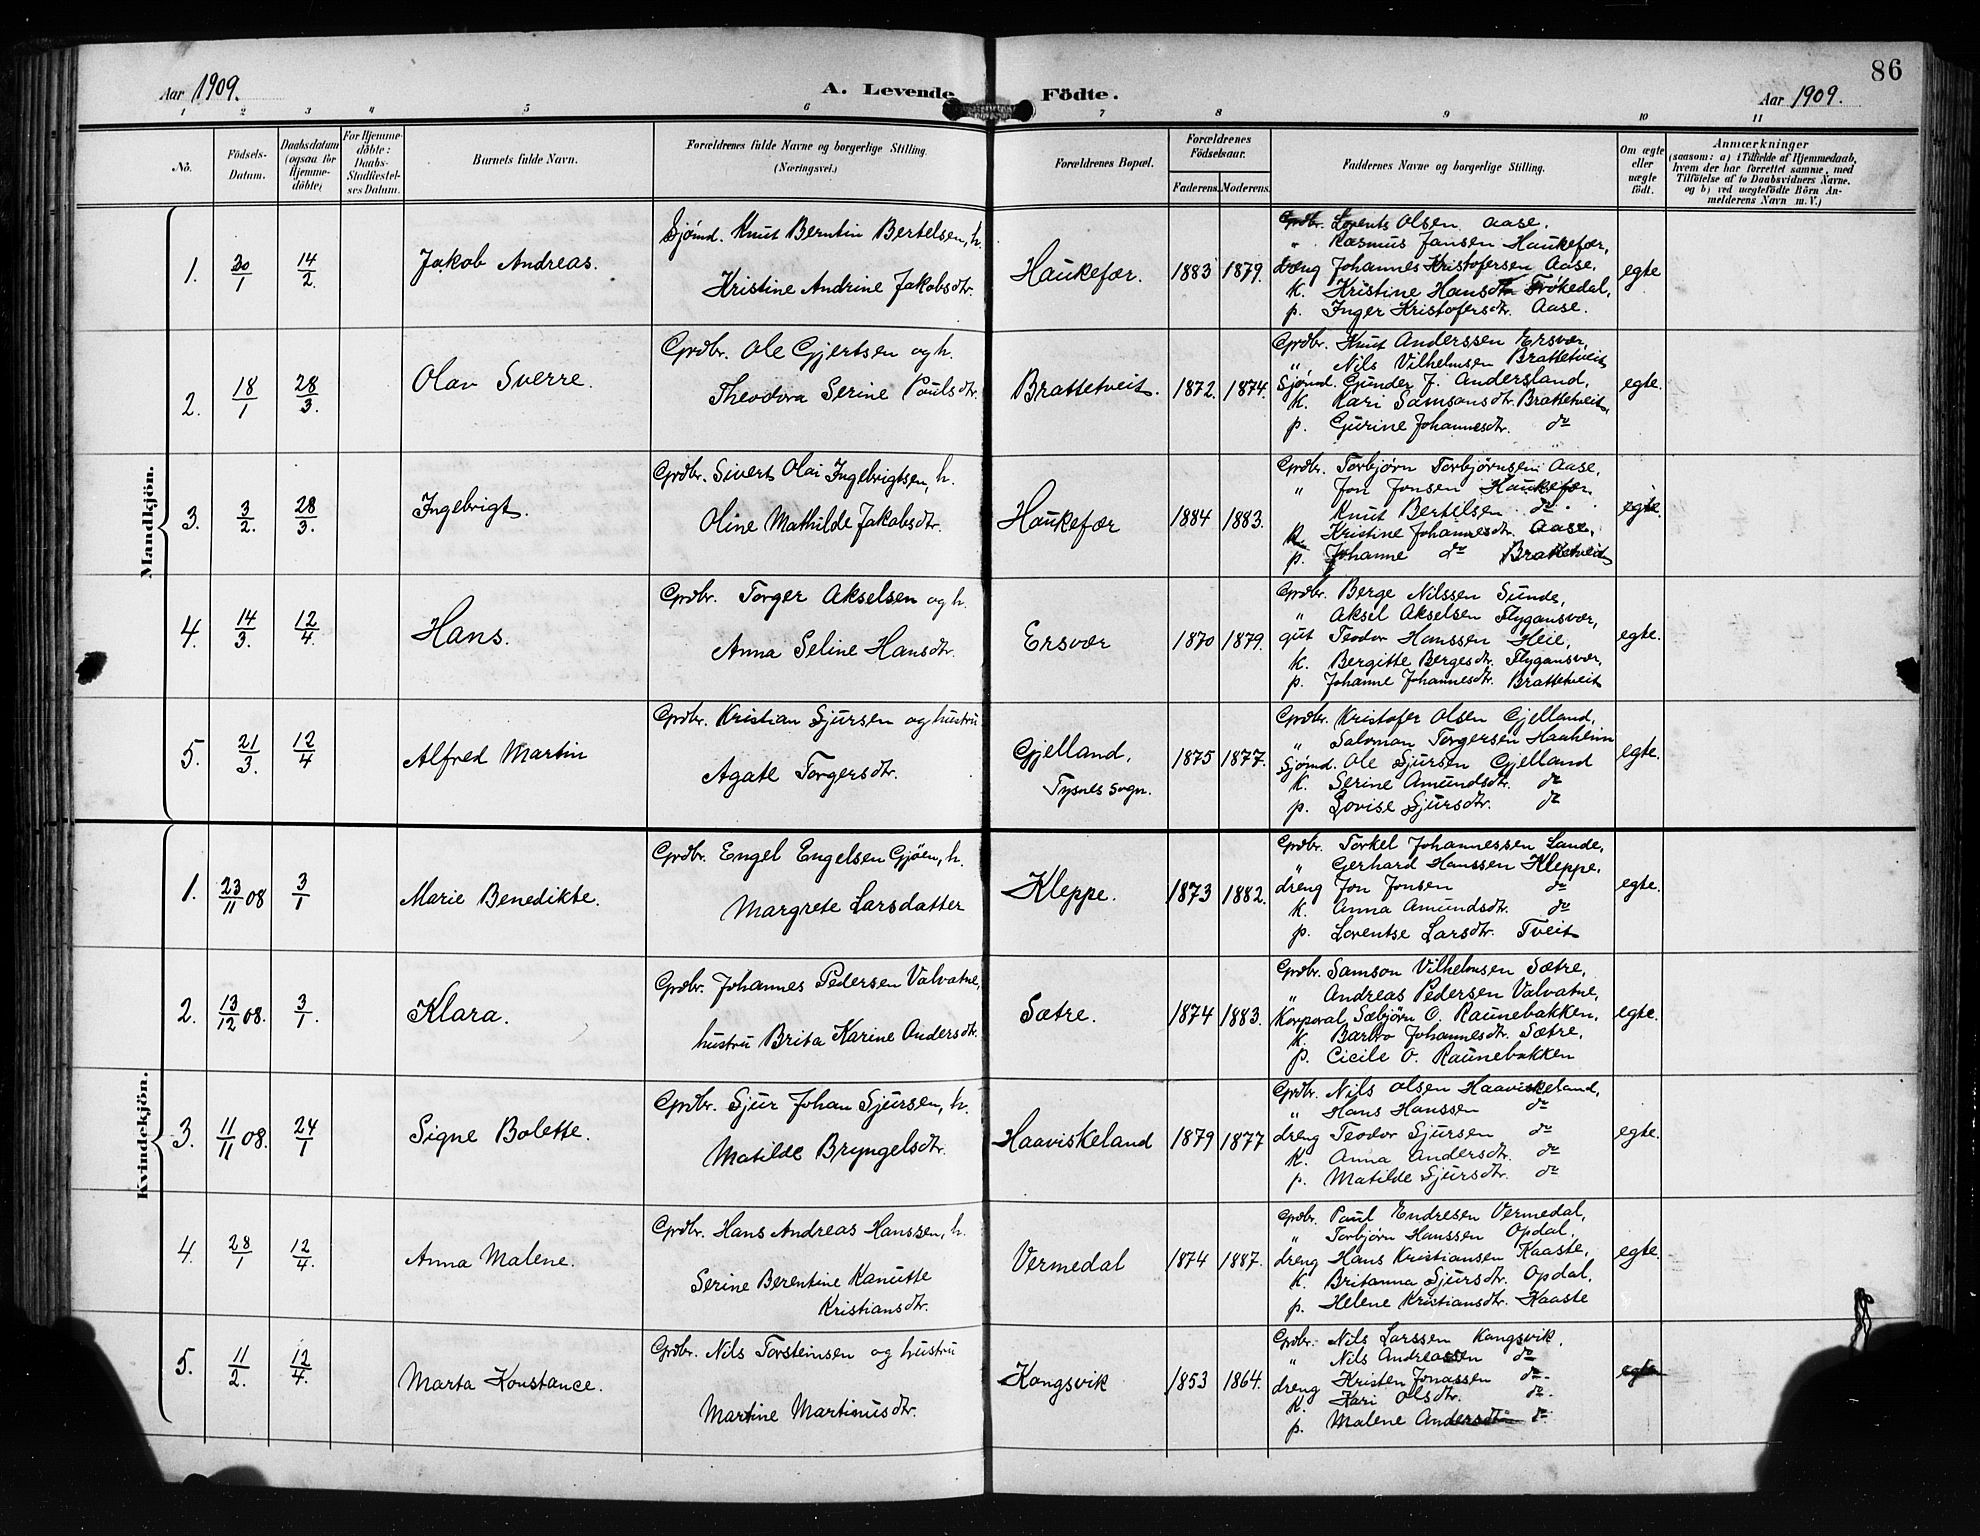 86
Aar 1909.
A. Levende Födte.
Aar 1909.
1 2 3 4 5 6 7 8 9 10 11
No.
Födsels-Datum.
Daabsdatum (ogsaa för Hjemme-döbte)
For Hjemme-döbte: Daabs-Stadfæstel-ses Datum.
Barnets fulde Navn.
Forældrenes fulde Navne og borgerlige Stilling.
(Næringsvei.)
Forældrenes Bopæl.
Forældrenes Födselsaar.
Faderens. Moderens.
Faddernes Navne og borgerlige Stilling.
Om ægte eller uægte födt.
Anmærkninger
(saasom: a) i Tilfælde af Hjemmedaab,
hvem der har forrettet samme, med
Tilföielse af to Daabsvidners Navne.
og b) ved uægtefödte Börn An-
melderens Navn m. V.)
Mandkjön.
1. 20/1 14/2 Jakob Andreas.
Sjømd. Knut Berntin Bertelsen, h.
Kristine Andrine Jakobsdtr.
Haukefær 1883 1879.
Grdbr. Lorents Olsen Aase,
" Rasmus Jansen Haukefær,
dreng Johannes Kristofersen Aase,
k. Kristine Hansdtr. Frøkedal,
p. Inger Kristofersdtr. Aase.
egte
2. 18/1 28/3. Olav Sverre.
Grdbr. Ole Gjertsen og h.
Theodora Serine Paulsdtr.
Brattetveit. 1872. 1874.
Grdbr. Knut Anderssen Ersvær,
" Nils Vilhelmsen Brattetveit
Sjømd. Gunder J. Andersland,
k. Kari Samsonsdtr. Brattetveit,
p. Gurine Johannesdtr. do
egte.
3. 3/2. 28/3. Ingebrigt.
Grdbr. Sivert Olai Ingebrigtsen, h.
Oline Mathilde Jakobsdtr.
Haukefær 1884 1883.
Grdbr. Torbjørn Torbjørnsen Aase,
" Jon Jonsen Haukefær.
Knut Bertelsen do.
k. Kristine Johannesdtr. Aase,
p. Johanne do Brattetveit
egte.
4. 14/3. 12/4 Hans.
Grdbr. Torger Akselsen og h.
Anna Seline Hansdtr.
Ersvær 1870 1879.
Grdbr. Berge Nilssen Sunde,
" Aksel Akselsen Flygansvær,
gut Teodor Hanssen Heie,
k. Bergitte Bergesdtr. Flygansvær,
p. Johanne Johannesdtr. Brattetveit
egte.
5. 21/3. 12/4 Alfred Martin
Grdbr. Kristian Sjursen og hustru
Agate Torgersdtr.
Gjelland,
Tysnes sogn.
1875 1877.
Grdbr. Kristofer Olsen Gjelland,
" Salomon Torgersen Haaheim
Sjømd. Ole Sjursen Gjelland
k. Serine Amundsdtr. do
p. Lovise Sjursdtr. do
egte.
Kvindekjön.
1. 23/11 08 3/1 Marie Benedikte.
Grdbr. Engel Engelsen Gjøen, h.
Margrete Larsdatter
Kleppe. 1873 1882.
Grdbr. Torkel Johannessen Lande,
" Gerhard Hanssen Kleppe,
dreng Jon Jonsen do
k. Anna Amundsdtr. do
p. Lorentse Larsdtr. Tveit
egte.
2. 13/12 08. 3/1. Klara.
Grdbr. Johannes Pedersen Valvatne,
hustru Brita Karine Andersdtr.
Sætre. 1874 1883.
Grdbr. Samson Vilhelmsen Sætre,
" Andreas Pedersen Valvatne,
Korporal Sæbjørn O. Raunebakken,
k. Barbro Johannesdtr. Sætre,
p. Cicile O. Raunebakken
egte.
3. 11/11 08. 24/1 Signe Bolette.
Grdbr. Sjur Johan Sjursen, h.
Matilde Bryngelsdtr.
Haaviskeland 1879 1877
Grdbr. Nils Olsen Haaviskeland,
" Hans Hanssen do
dreng Teodor Sjursen do
k. Anna Andersdtr. do
p. Matilde Sjursdtr. do
egte.
4. 28/1 12/4. Anna Malene.
Grdbr. Hans Andreas Hanssen, h.
Serine Berentine Kanutte
Kristiansdtr.
Vermedal 1874 1887.
Grdbr. Paul Endresen Vermedal,
" Torbjørn Hanssen Opdal,
dreng Hans Kristiansen Kaaste,
k. Britanna Sjursdtr. Opdal,
p. Helene Kristiansdtr. Kaaste
egte.
5. 11/2. 12/4. Marta Konstance.
Grdbr. Nils Torsteinsen og hustru
Martine Martinusdtr.
Kongsvik 1853 1864.
Grdbr. Nils Larssen Kongsvik,
" Nils Andreassen do
dreng Kristen Jonassen do.
k. Kari Olsdtr. do.
p. Malene Andersdtr. do
egte